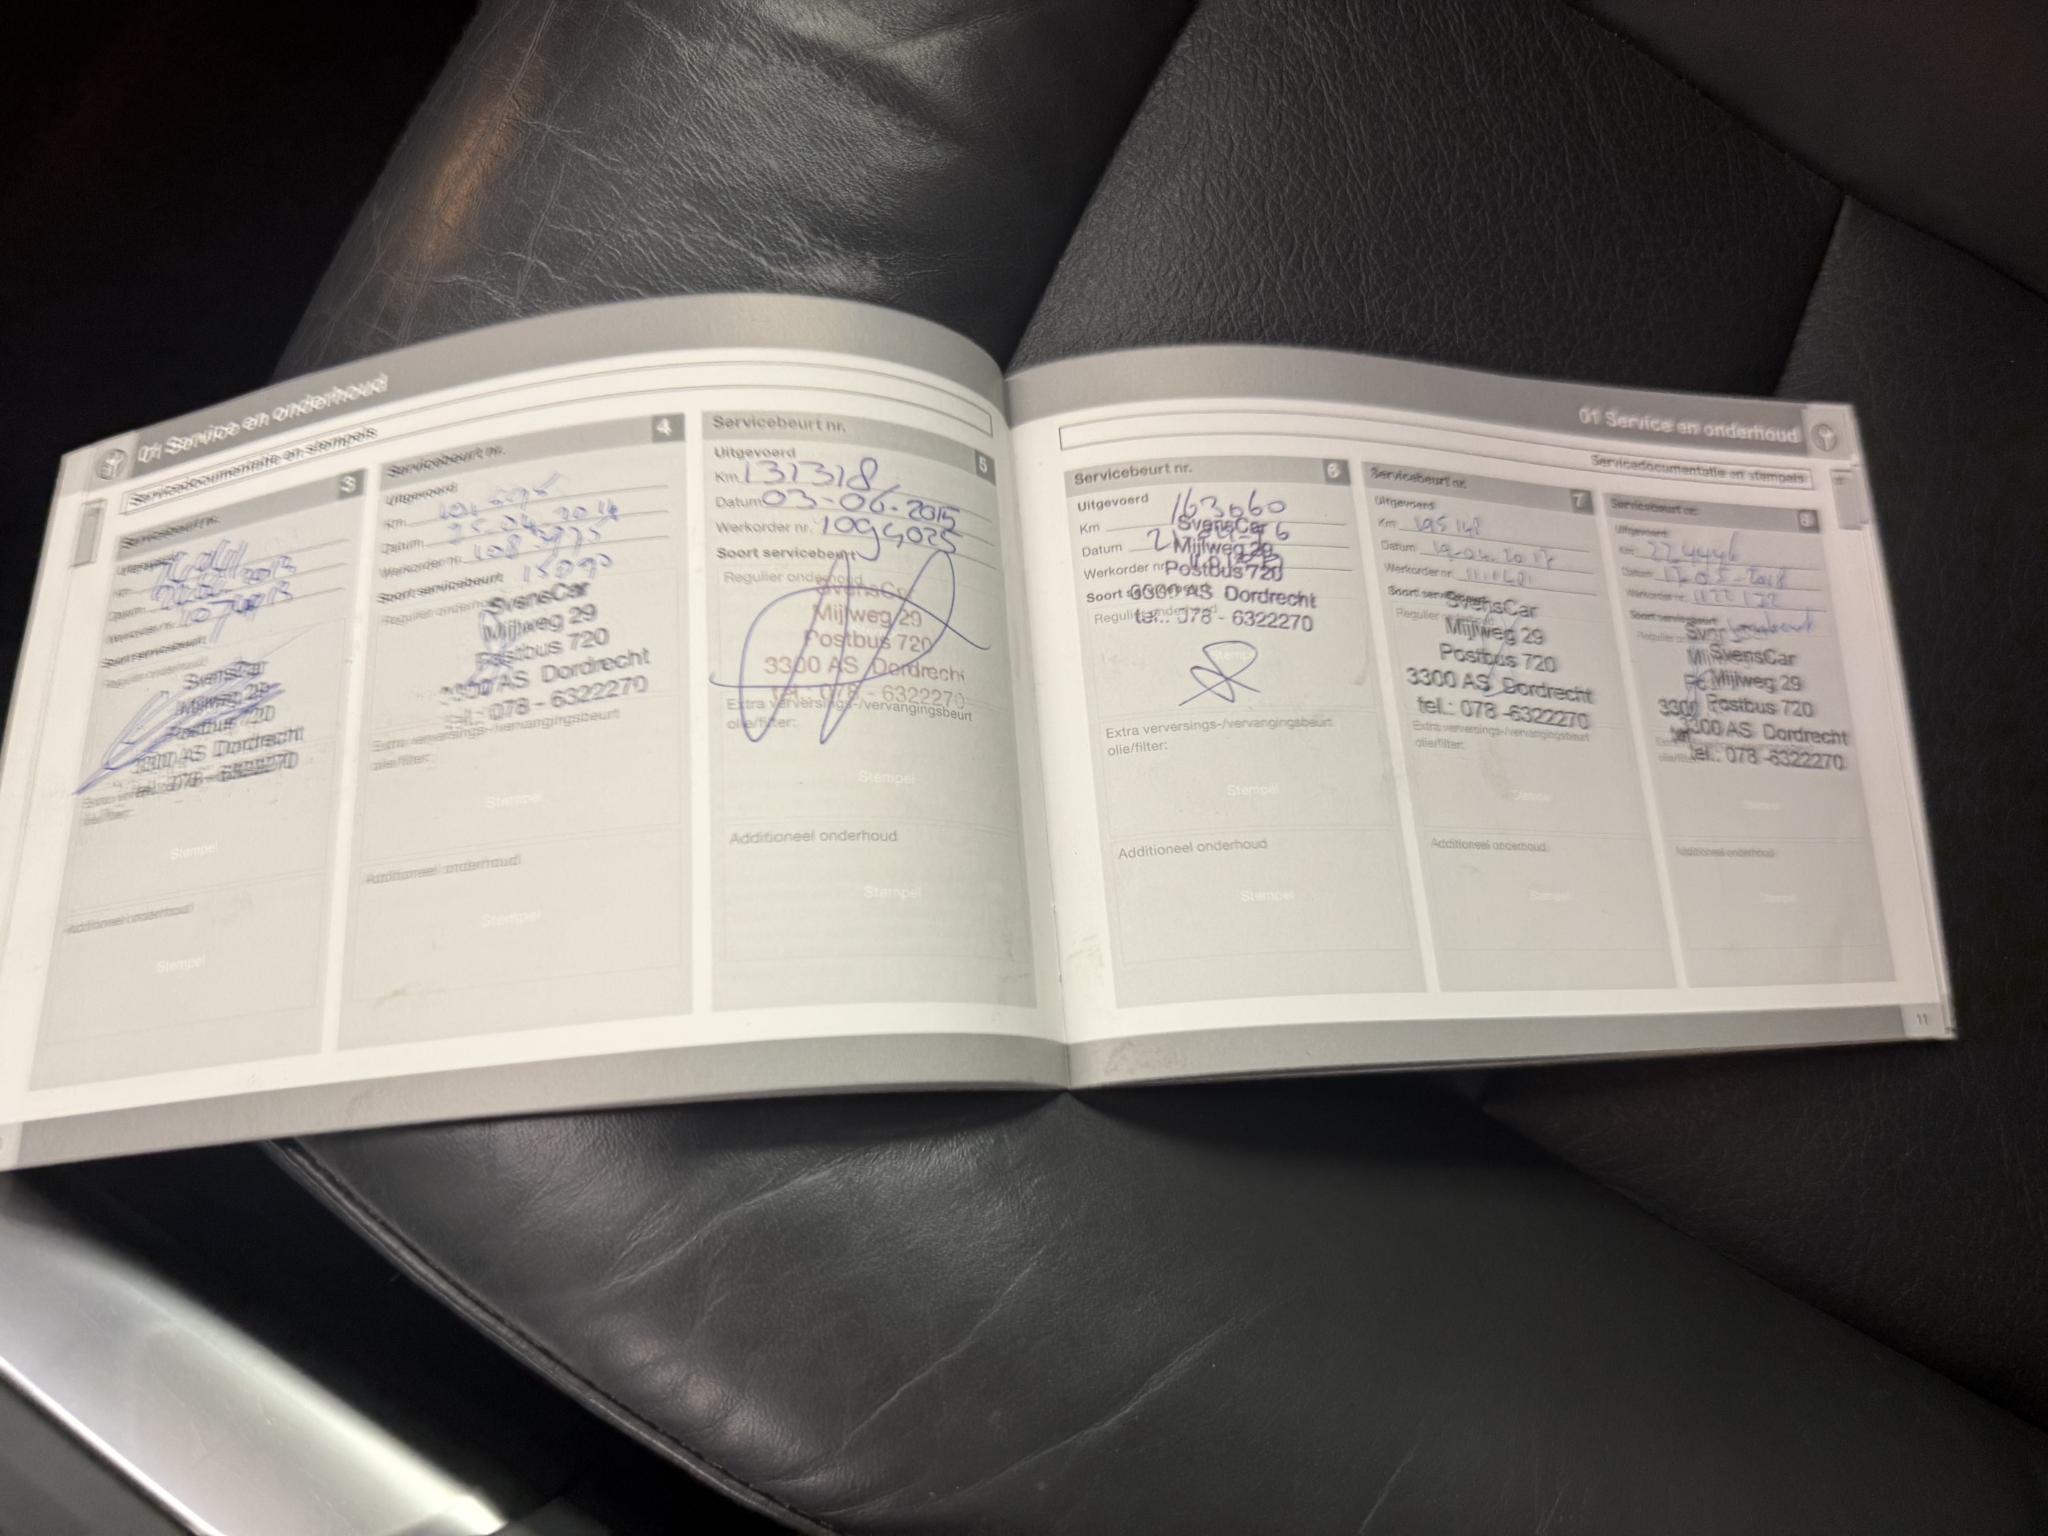 01 Service en onderhoud
Servicedocumentatie en stempels
Servicebeurt nr. 3
Uitgevoerd
Km
Datum 2013
Werkorder nr.
Soort servicebeurt
Regulier onderhoud
SvensCar
Mijlweg 29
Postbus 720
3300 AS Dordrecht
tel.: 078 - 6322270
olie/filter:
Stempel
Additioneel onderhoud
Stempel
Servicebeurt nr. 4
Uitgevoerd
Km
Datum 25.04.2014
Werkorder nr.
Soort servicebeurt
Regulier onderhoud
SvensCar
Mijlweg 29
Postbus 720
3300 AS Dordrecht
tel.: 078 - 6322270
Extra verversings-/vervangingsbeurt
olie/filter:
Stempel
Additioneel onderhoud
Stempel
Servicebeurt nr. 5
Uitgevoerd
Km 131318
Datum 03-06-2015
Werkorder nr. 1094025
Soort servicebeurt
Regulier onderhoud
SvensCar
Mijlweg 29
Postbus 720
3300 AS Dordrecht
tel.: 078 - 6322270
Extra verversings-/vervangingsbeurt
olie/filter:
Stempel
Additioneel onderhoud
Stempel
01 Service en onderhoud
Servicedocumentatie en stempels
Servicebeurt nr. 6
Uitgevoerd
Km 163060
Datum
Werkorder nr.
Soort
Regulier onderhoud
SvensCar
Mijlweg 29
Postbus 720
3300 AS Dordrecht
tel.: 078 - 6322270
Stempel
Extra verversings-/vervangingsbeurt
olie/filter:
Stempel
Additioneel onderhoud
Stempel
Servicebeurt nr. 7
Uitgevoerd
Km 195148
Datum 19.04.2017
Werkorder nr.
Soort servicebeurt
Regulier
SvensCar
Mijlweg 29
Postbus 720
3300 AS Dordrecht
tel.: 078 -6322270
Extra verversings-/vervangingsbeurt
olie/filter:
Stempel
Additioneel onderhoud
Stempel
Servicebeurt nr. 8
Uitgevoerd
Km 224446
Datum 17-05-2018
Werkorder nr. 1122122
Soort servicebeurt
SvensCar
Mijlweg 29
Postbus 720
3300 AS Dordrecht
tel.: 078 -6322270
Stempel
Additioneel onderhoud
Stempel
11